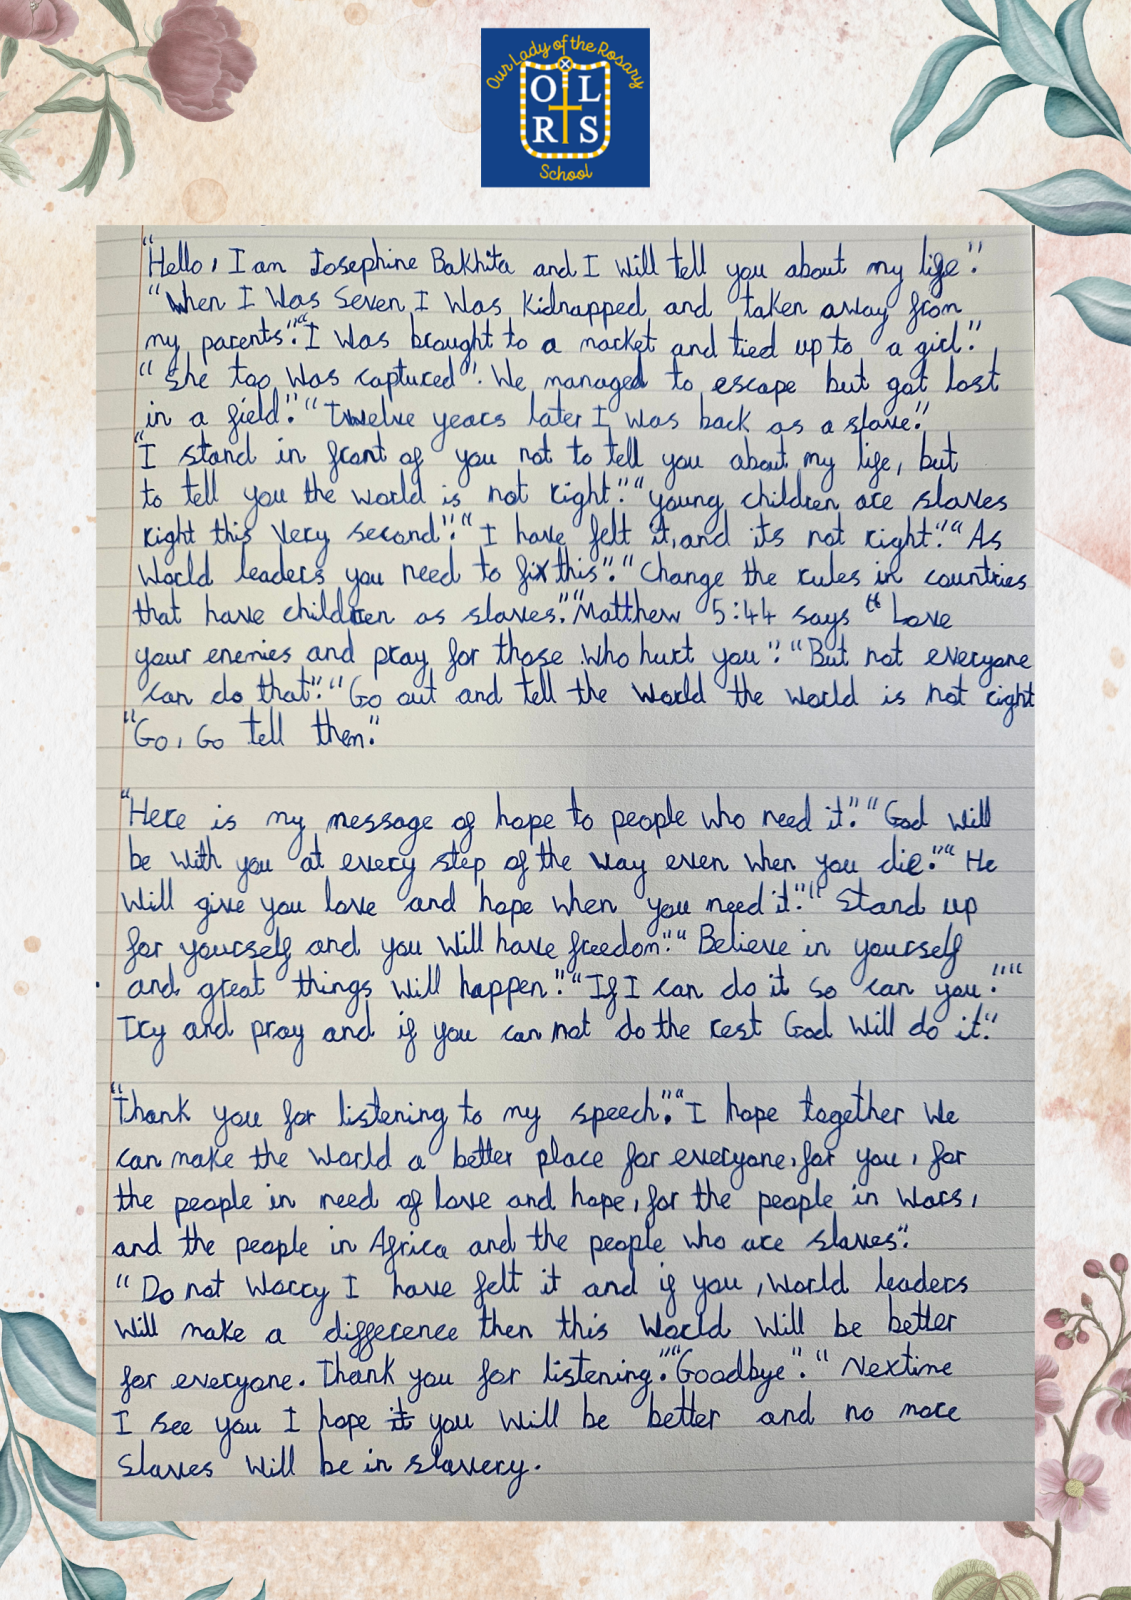 Our Lady of the Rosary
O L
R S
School
"Hello, I am Josephine Bakhita and I will tell you about my life".
"When I was seven, I was kidnapped and taken away from
my parents". "I was brought to a market and tied up to a girl."
"She too was captured". We managed to escape but got lost
in a field". "Twelve years later I was back as a slave".
"I stand in front of you not to tell you about my life, but
to tell you the world is not right". "young children are slaves
right this very second". "I have felt it, and its not right". "As
World leaders you need to fix this". "Change the rules in countries
that have children as slaves". "Matthew 5:44 says "Love
your enemies and pray for those who hurt you". "But not everyone
can do that". "Go out and tell the world the world is not right
"Go, Go tell them".
"Here is my message of hope to people who need it". "God will
be with you at every step of the way even when you die". "He
will give you love and hope when you need it". "Stand up
for yourself and you will have freedom". "Believe in yourself
and great things will happen". "If I can do it so can you". "
Try and pray and if you can not do the rest God will do it".
"Thank you for listening to my speech". "I hope together we
can make the world a better place for everyone, for you, for
the people in need of love and hope, for the people in wars,
and the people in Africa and the people who are slaves".
"Do not worry I have felt it and if you, world leaders
will make a difference then this world will be better
for everyone. Thank you for listening". "Goodbye". "Nextime
I see you I hope it you will be better and no more
slaves will be in slavery.